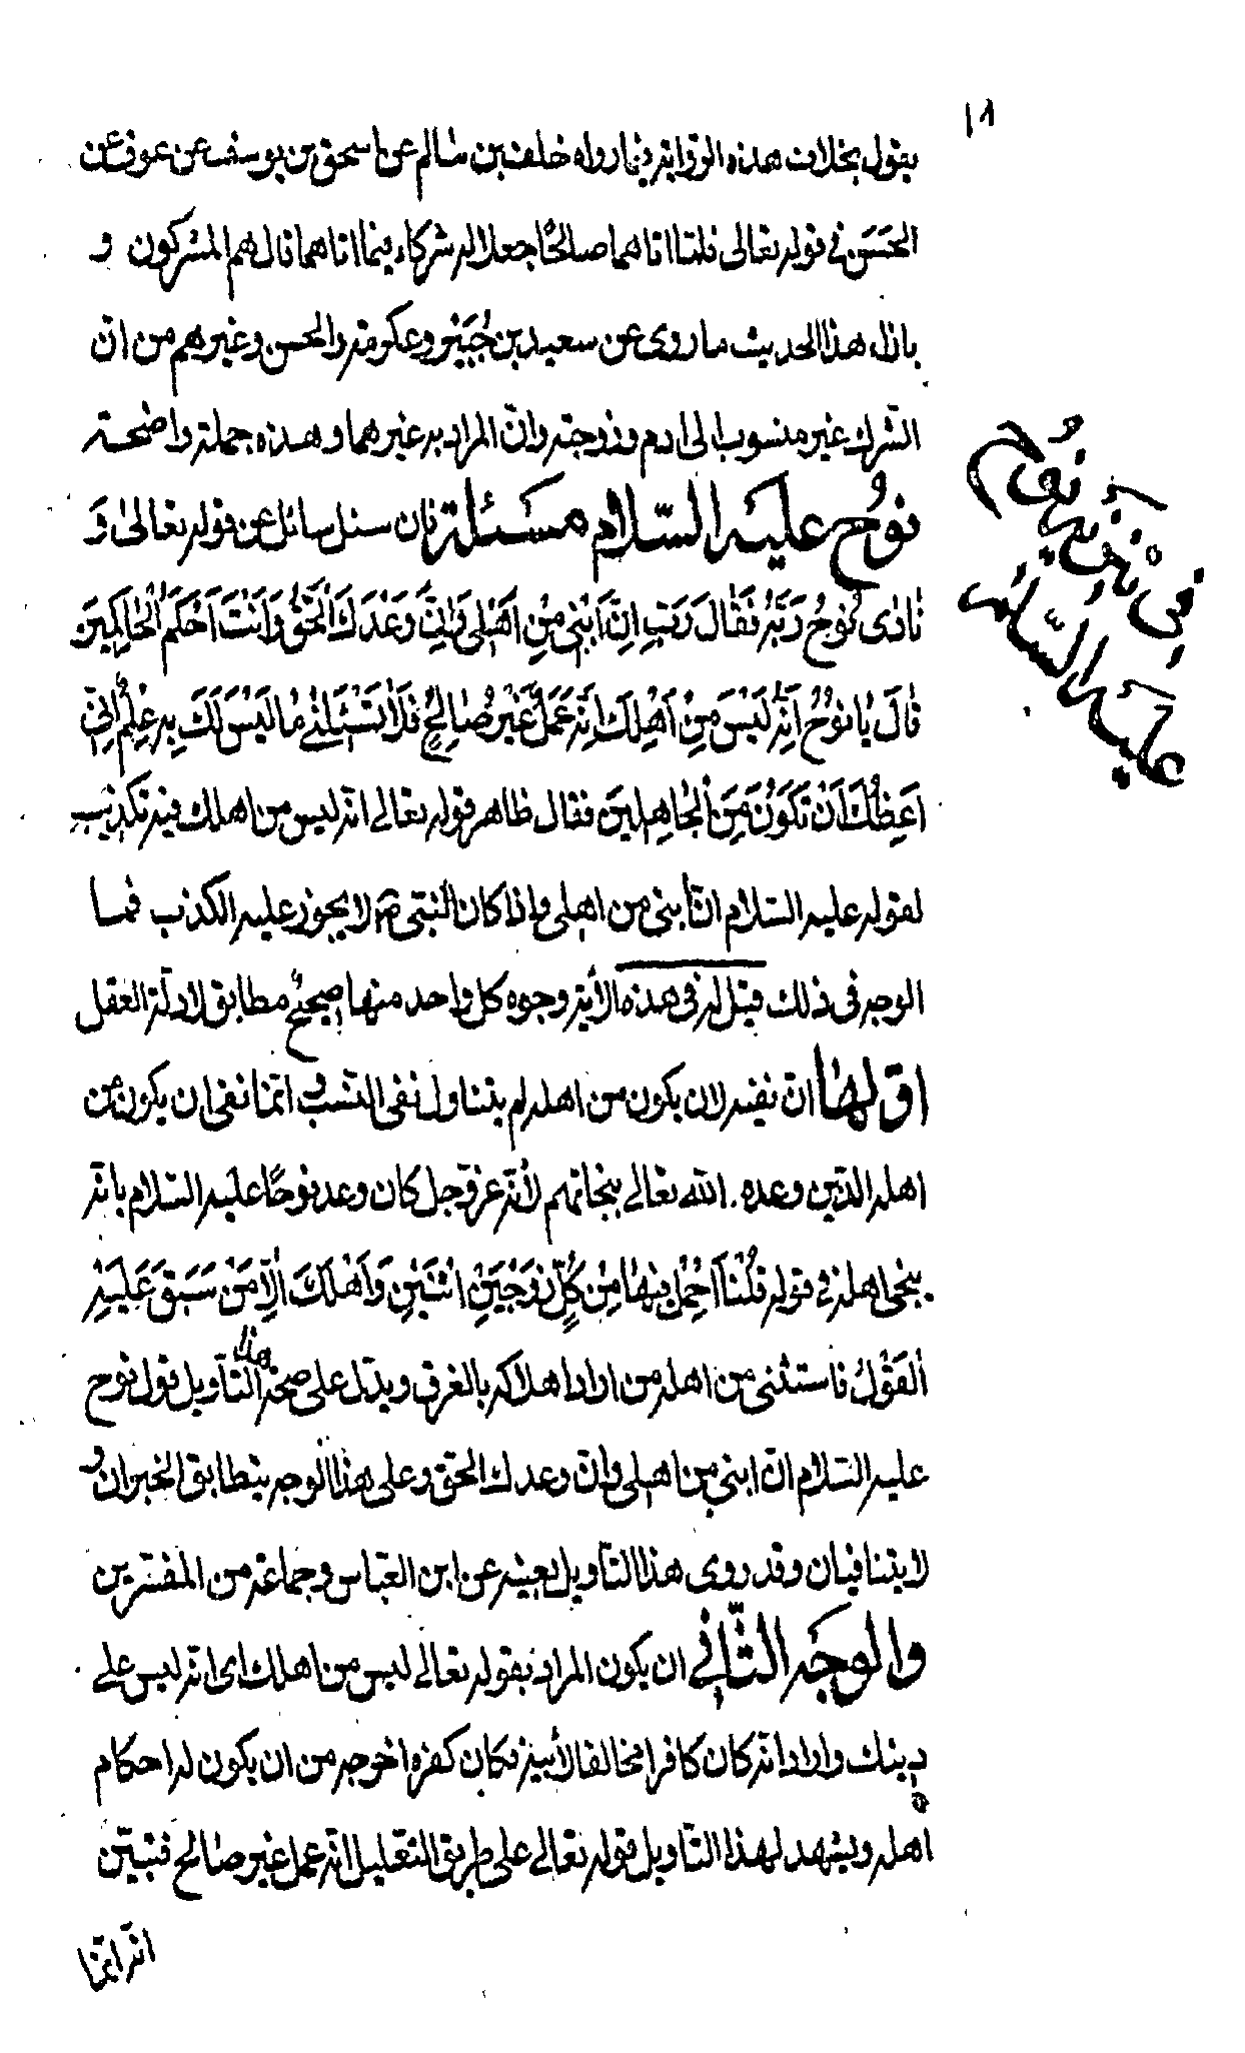 ١٨
يقول بخلاف هذه الرواية فيما رواه خلف بن سالم عن اسحق بن يوسف عن عوف عن
الحَسَن في قوله تعالى فلمّا اتاهما صالحًا جعلا له شركاء فيما اتاهما قال هم المشركون و
بازاء هذا الحديث ما روى عن سعيد بن جُبَيْر وعكرمة والحسن وغيرهم من انّ
الشّرك غير منسوب الى ادم وزوجته وانّ المراد به غيرهما وهذه جملة واضحة
نوُح عليَه السّلام مسَئلة فان سئل سائل عن قوله تعالىٰ وَ
نٰادٰى نُوحُ رَبَّهُ فَقٰالَ رَبِّ اِنَّ اَبْنِي مِنْ اَهْلِى وَاِنَّ وَعْدَكَ الْحَقُّ وَاَنْتَ اَحْكَمُ الْحٰاكِمِينَ
قٰالَ يٰا نُوْحُ اِنَّهُ لَيْسَ مِنْ اَهْلِكَ اِنَّهُ عَمَلٌ غَيْرُ صٰالِحٍ فَلاٰ تَسْئَلْنِي مٰا لَيْسَ لَكَ بِهِ عِلْمٌ اِنِّي
اَعِظُكَ اَنْ تَكُونَ مِنَ الْجٰاهِلِينَ فقال ظاهر قوله تعالى انّه ليس من اهلك فيه تكذيب
لقوله عليه السّلام انّ ابنى من اهلى واذا كان النّبى ص لا يجوز عليه الكذب فما
الوجه فى ذلك قيل له فى هذه الأية وجوه كل واحد منها صحيحٌ مطابق لادلّة العقل
اوّلهٰا انّ نفيه لان يكون من اهله لم يتناول نفى النّسب و انّما نفى ان يكون من
اهله الّذين وعده الله تعالى بنجاتهم لأنّه عزّ وجل كان وعد نوحًا عليَه السّلام بانّه
ينجى اهله فى قوله قُلْنٰا احْمِلْ فِيهٰا مِنْ كُلٍّ زَوْجَيْنِ اثْنَيْنِ وَاَهْلَكَ اِلاّٰ مَنْ سَبَقَ عَلَيْهِ
الْقَوْلُ فاستثنى من اهله من اراد اهلاكه بالغرق ويدّل على صحّة هذا التّأويل قول نوح
عليه السّلام انّ ابني من اهلى وانّ وعدك الحقّ وعلى هذا الوجه يتطابق الخبران و
لا يتنافيان وقد روى هذا التّأويل بعينه عن ابن العبّاس وجماعة من المفسّرين
والوجَه الثّاني ان يكون المراد بقوله تعالى ليس من اهلك اى انّه ليس على
دينك واراد انّه كان كافرا مخالفا لأبيه فكان كفره اخرجه من ان يكون له احكام
اهله ويشهد لهذا التّأويل قوله تعالى على طريق التّعليل انّه عمل غير صالح فتبيّن
انّه انّما
فى تنزيه نوُح
عليَه السّلام